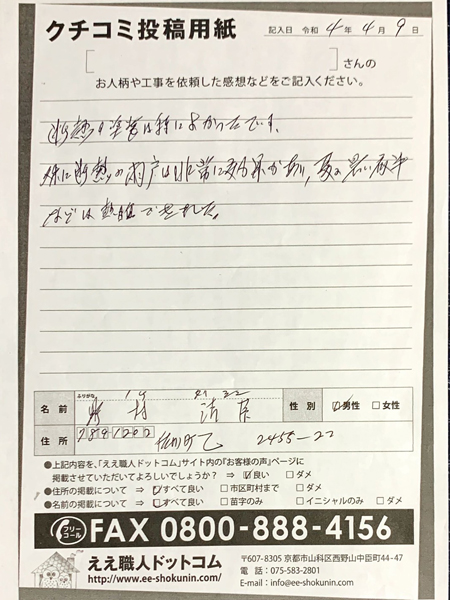 クチコミ投稿用紙
記入日 令和 4 年 4 月 9 日
[ ] さんの
お人柄や工事を依頼した感想などをご記入ください。
断熱 塗装は特によかったです。
特に断熱の雨戸は非常に効果があり、夏の暑い夜中
などは熱睡できました。
ふりがな
名前 村 清
性別 ☑男性 □女性
住所 7891202 佐川町乙 2455-22
●上記内容を、「ええ職人ドットコム」サイト内の『お客様の声』ページに
掲載させていただいてよろしいでしょうか? ⇒ ☑良い □ダメ
●住所の掲載について ⇒ ☑すべて良い □市区町村まで □ダメ
●名前の掲載について ⇒ ☑すべて良い □苗字のみ □イニシャルのみ □ダメ
フリーコール FAX 0800-888-4156
ええ職人ドットコム
http://www.ee-shokunin.com/
〒607-8305 京都市山科区西野山中臣町44-47
電話:075-583-2801
E-mail:info@ee-shokunin.com